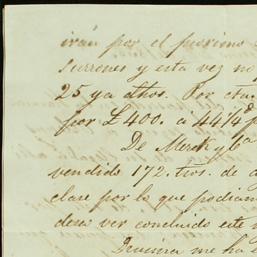 irán por el proximo
surrones y esta vez no
25 ya dhos. Por
por £ 400. á 44¼ p
De Merck y Ca
vendido 172. tros. de
clase por lo que podiam
desea ver concluido este
me ha